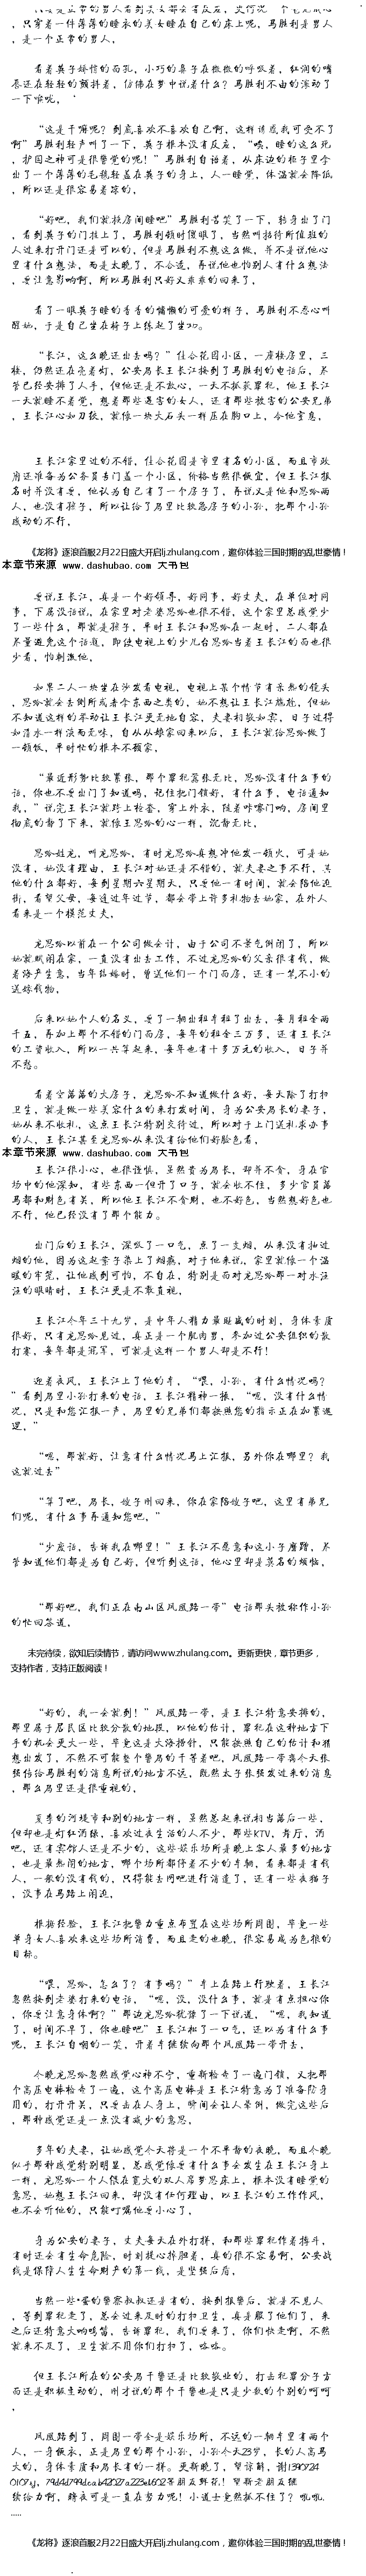 ，只穿着一件薄薄的睡衣的美女睡在自己的床上呢，马胜利是男人
，是一个正常的男人，
看着英子娇俏的面孔，小巧的鼻子在微微的呼吸着，红润的嘴
唇还在轻轻的颤抖着，仿佛在梦中说着什么？马胜利不由的滚动了
一下喉咙，
“这是干嘛呢？到底喜欢不喜欢自己啊，这样诱惑我可受不了
啊”马胜利轻声叫了一下，英子根本没有反应，“唉，睡的这么死
，护国之神可是很警觉的呢！”马胜利自语着，从床边的柜子里拿
出了一个薄薄的毛毯轻盖在英子的身上，人一睡觉，体温就会降低
，所以还是很容易着凉的，
“好吧，我们就换房间睡吧”马胜利苦笑了一下，转身出了门
，看到英子的门挂上了，马胜利顿时傻眼了，当然叫招待所值班的
人过来打开门还是可以的，但是马胜利不想这么做，并不是说他心
里有什么想法，而是太晚了，不合适，再说他也怕别人有什么想法
，要注意影响啊，所以马胜利只好又乖乖的回来了，
看了一眼英子睡的香香的慵懒的可爱的样子，马胜利不忍心叫
醒她，于是自己坐在椅子上练起了坐功。
“长江，这么晚还出去吗？”佳合花园小区，一座楼房里，三
楼，仍然还在亮着灯，公安局长王长江接到了马胜利的电话后，尽
管已经安排了人手，但他还是不放心，一天不抓获罪犯，他王长江
一天就睡不着觉，想着那些遇害的女人，还有那些被害的公安兄弟
，王长江心如刀绞，就像一块大石头一样压在胸口上，令他窒息，
王长江家里过的不错，佳合花园是市里有名的小区，而且市政
府还准备为公务员专门盖一个小区，价格当然很便宜，但王长江报
名时并没有要，他认为自己有了一个房子了，再说又是他和思玲两
人，也没有孩子，所以让给了局里比较急房子的小孙，把那个小孙
感动的不行，
《龙将》逐浪首服2月22日盛大开启lj.zhulang.com，邀你体验三国时期的乱世豪情！
本章节来源 www.dashubao.com 大书包
要说王长江，真是一个好领导，好同事，好丈夫，在单位对同
事，下属没话说，在家里对老婆思玲也很不错，这个家里总感觉少
了一些什么，那就是孩子，平时王长江和思玲在一起时，二人都在
尽量避免这个话题，即使电视上的少儿台思玲当着王长江的面也很
少看，怕刺激他，
如果二人一块坐在沙发看电视，电视上某个情节有亲热的镜头
，思玲就会去厕所或者拿东西之类的，她不想让王长江尴尬，但她
不知道这样的举动让王长江更无地自容，夫妻相敬如宾，日子过得
如清水一样淡而无味，自从从娘家回来以后，王长江就给思玲做了
一顿饭，平时忙的根本不顾家，
“最近形势比较紧张，那个罪犯嚣张无比，思玲没有什么事的
话，你也不要出门了知道吗，记住把门锁好，有什么事，电话通知
我，”说完王长江就挎上枪套，穿上外衣，随着咔嚓门响，房间里
彻底的静了下来，就像王思玲的心一样，沉静无比，
思玲姓龙，叫龙思玲，有时龙思玲真想冲他发一顿火，可是她
没有，她没有理由，王长江对她还是不错的，就夫妻之事不行，其
他的什么都好，每到星期六星期天，只要他一有时间，就会陪他逛
街，看望父母，每逢过年过节，都会带上许多礼物去她家，在外人
看来是一个模范丈夫，
龙思玲以前在一个公司做会计，由于公司不景气倒闭了，所以
她就赋闲在家，一直没有出去工作，不过龙思玲的父亲很有钱，做
着海产生意，当年结婚时，曾送他们一个门面房，还有一笔不小的
送嫁钱物，
后来以她个人的名义，要了一辆出租车租了出去，每月租金两
千五，再加上那个不错的门面房，每年的租金三万多，还有王长江
的工资收入，所以一共算起来，每年也有十多万元的收入，日子并
不愁。
看着空荡荡的大房子，龙思玲不知道做什么好，每天除了打扫
卫生，就是做一些美容什么的来打发时间，身为公安局长的妻子，
她从来不收礼，这点王长江特别交待过，所以对于上门送礼求办事
的人，王长江甚至龙思玲从来没有给他们好脸色看，
本章节来源 www.dashubao.com 大书包
王长江很小心，也很谨慎，虽然贵为局长，却并不贪，身在官
场中的他深知，有些东西一但开了口子，就会收不住，多少官员落
马都和财色有关，所以他王长江不贪财，也不好色，当然想好色也
不行，他已经没有了那个能力。
出门后的王长江，深吸了一口气，点了一支烟，从来没有抽过
烟的他，因为这起案子染上了烟瘾，对于他来说，家里就像一个温
暖的牢笼，让他感到可怕，不自在，特别是面对龙思玲那一对水汪
汪的眼睛时，王长江更是不敢直视，
王长江今年三十九岁，是中年人精力最旺盛的时刻，身体素质
很好，只有龙思玲见过，真正是一个肌肉男，参加过公安组织的散
打赛，每年都是冠军，可就是这样一个男人却是不行！
迎着夜风，王长江上了他的车，“喂，小孙，有什么情况吗？
”看到局里小孙打来的电话，王长江精神一振，“嗯，没有什么情
况，只是和您汇报一声，局里的兄弟们都按照您的指示正在加紧巡
逻，”
“嗯，那就好，注意有什么情况马上汇报，另外你在哪里？我
这就过去”
“算了吧，局长，嫂子刚回来，你在家陪嫂子吧，这里有弟兄
们呢，有什么事再通知您吧，”
“少废话，告诉我在哪里！”王长江不愿意和这小子磨蹭，尽
管知道他们都是为自己好，但听到这话，他心里却是莫名的烦恼，
“那好吧，我们正在南山区凤凰路一带”电话那头被称作小孙
的忙回答道，
未完待续，欲知后续情节，请访问www.zhulang.com。更新更快，章节更多，
支持作者，支持正版阅读！
“好的，我一会就到！”凤凰路一带，是王长江特意安排的，
那里属于居民区比较分散的地段，以他的估计，罪犯在这种地方下
手的机会更大一些，毕竟这是大海捞针，只能按照自己的估计和猜
想出发了，不然不可能整个警局的干等着吧，凤凰路一带离今天张
强传给马胜利的消息所说的地方不远，既然太子张强发过来的消息
，那么局里还是很重视的，
夏季的河堤市和别的地方一样，虽然总起来说相当落后一些，
但却也是灯红酒绿，喜欢过夜生活的人不少，那些KTV，舞厅，酒
吧，还有宾馆人还是不少的，这些娱乐场所是晚上容人最多的地方
，也是最热闹的地方，哪个场所都停着不少的车辆，看来都是有钱
人，一般的没有钱的，只得能去网吧进行消遣了，还有一些夜猫子
，没事在马路上闲逛，
根据经验，王长江把警力重点布置在这些场所周围，毕竟一些
单身女人喜欢来这些场所消费，而且走的也晚，很容易成为色狼的
目标。
“喂，思玲，怎么了？有事吗？”车上在路上行驶着，王长江
忽然接到老婆打来的电话，“嗯，没，没什么事，就是有点担心你
，你要注意身体啊？”那边龙思玲犹豫了一下说道，“嗯，我知道
了，时间不早了，你也睡吧”王长江松了一口气，还以为有什么事
呢，王长江自嘲的一笑，开着车继续向那个凤凰路一带开去，
今晚龙思玲忽然感觉心神不宁，重新检查了一遍门锁，又把那
个高压电棒检查了一遍，这个高压电棒是王长江特意为了准备防身
用的，打开开关，只要击在人身上，瞬间会让人晕倒，做完这些后
，那种感觉还是一点没有减少的意思，
多年的夫妻，让她感觉今天将是一个不平静的夜晚，而且今晚
似乎那种感觉特别明显，总感觉像要有什么事会发生在王长江身上
一样，龙思玲一个人偎在宽大的双人席梦思床上，根本没有睡觉的
意思，她想王长江回来，却没有任何理由，以王长江的工作作风，
也不会听他的，只能叮嘱他要小心了，
身为公安的妻子，丈夫每天在外打拼，和那些罪犯作着搏斗，
有时还会有生命危险，时刻提心掉胆着，真的很不容易啊，公安战
线是保障人生生命财产的第一线，是坚强后盾，
当然一些*蛋的警察叔叔还是有的，接到报警后，就是不见人
，等到罪犯走了，总会过来及时的打扫卫生，真是服了他们了，来
之后还特意大响鸣笛，告诉罪犯，我们要来了，你们快走啊，不然
就来不及了，卫生就不用你们打扫了，咯咯。
但王长江所在的公安局干警还是比较敬业的，打击犯罪分子方
面还是积极主动的，刚才说的那个干警也是只是少数的个别的呵呵
，
凤凰路到了，周围一带全是娱乐场所，不远的一辆车里有两个
人，一身便衣，正是局里的那个小孙，小孙今天23岁，长的人高马
大的，身体素质和局长有的一样。更新晚了，望谅解，谢1390724
0107sj，79d4d799dcab42027a223eb602等朋友鲜花！望新老朋友继
续给力啊，静夜可是一直在努力呢！小道士竟然撼不住了？吼吼.
.....
《龙将》逐浪首服2月22日盛大开启lj.zhulang.com，邀你体验三国时期的乱世豪情！